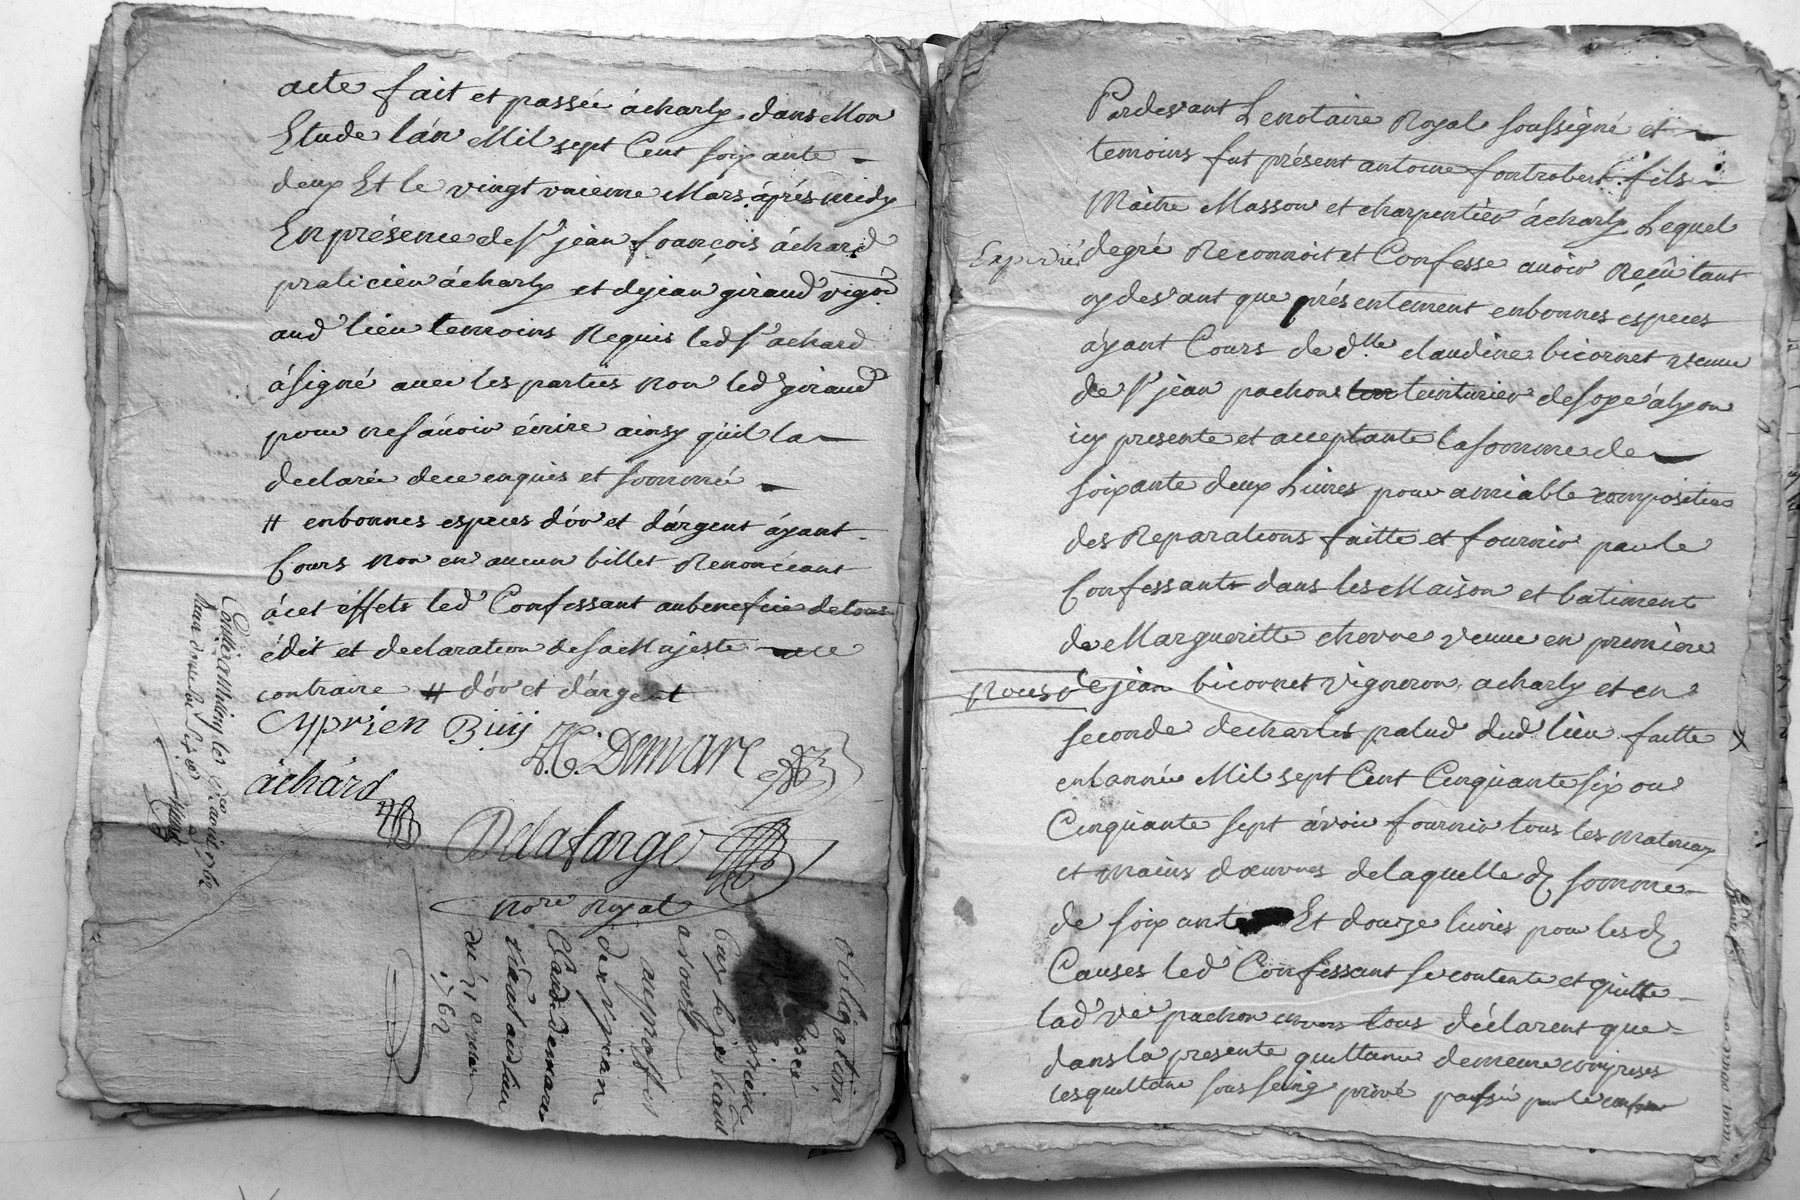 acte fait et passée á charly dans Mon
Etude lán Mil sept Cent soixante
deux Et le vingt unieme Mars áprés midy
En présence de sr jean françois áchard
praticien á charly et de jean giraud vigon
aud' lieu temoins Requis led sr achard
á signé avec les parties non led giraud
pour ne sávoir écrire ainsy quil la
declarée de ce enquis et sommé
# en bonnes especes dór et dárgent áyant
Cours non en aucun billet Renonceant
á cet éffets led' Confessant au benefice de tous
édit et declaration de sa Majeste a ce
contraire # dór et dárgent
Cyprien Buij
C. Demare
áchárd
Delafarge
nore Royal
obligation
passé
Cyprien
au proffit
de sr jean
Claude demare
du 21 mars
1762
Par devant Le notaire Royal soussigné et
temoins fut présent antoine fontrobert fils
Maitre Masson et charpentier á charly Lequel
Expedié
de gré Reconnoit et Confesse avoir Reçû tant
cy devant que présentement en bonnes especes
áyant Cours de dlle claudine bicornet veuve
de sr jean pachon teinturier de soye á lyon
icy presente et acceptante la somme de
soixante deux Livres pour amiable composition
des Reparations faitte et fournir par le
Confessant dans les Maison et batiment
de Margueritte chorve veuve en premiere
de jean bicornet vigneron a charly et en
seconde de charles palud dud' lieu faitte
en lannée Mil sept Cent Cinquante six ou
Cinquante sept ávoir fournir tous les materiaux
et mains dœuvres de laquelle d somme
de soixante Et douze livres pour les d
Causes led' Confessant se contente et quitte
lad' vee pachon envers tous déclarent que
dans la presente quittance demeure comprises
les quittance sous seing privé passée par le confessant